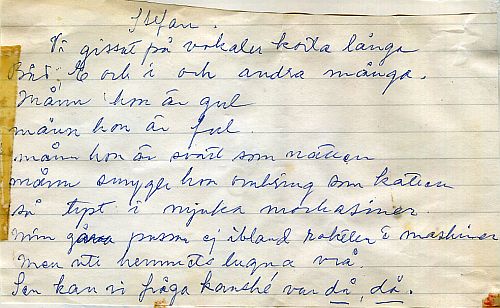 Stefan.
Vi gissat på vokaler korta långa
Både E och i och andra många.
Månn hon är gul
månn hon är ful.
månn hon är svart som natten
månn smyger hon omkring som katten
så tyst i mjuka mockasiner.
min passar ej ibland raketer & maskiner
Men uti hemmets lugna vrå.
Sen kan vi fråga kanshé var då, då.